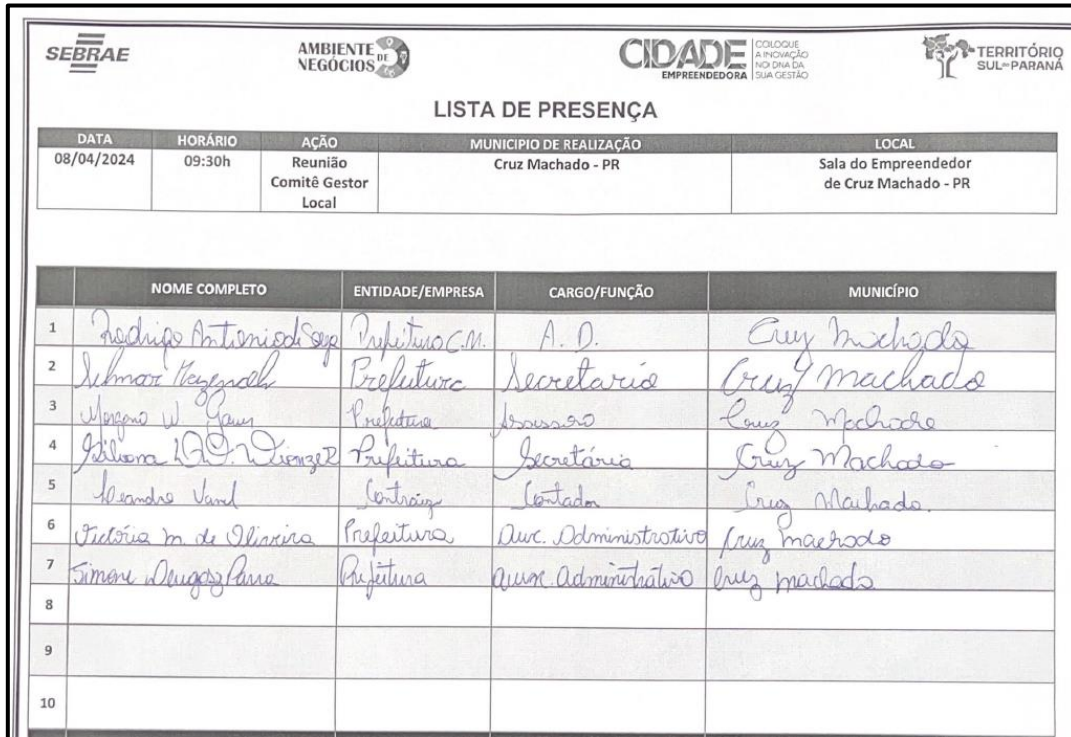 SEBRAE
AMBIENTE DE NEGÓCIOS
CIDADE EMPREENDEDORA
COLOQUE A INOVAÇÃO NO DNA DA SUA GESTÃO
TERRITÓRIO SUL DO PARANÁ
LISTA DE PRESENÇA
DATA HORÁRIO AÇÃO MUNICIPIO DE REALIZAÇÃO LOCAL
08/04/2024 09:30h Reunião Cruz Machado - PR Sala do Empreendedor
Comitê Gestor de Cruz Machado - PR
Local
NOME COMPLETO ENTIDADE/EMPRESA CARGO/FUNÇÃO MUNICÍPIO
1 Rodrigo Antonio de Prefeitura C.M. A. D. Cruz Machado
2 Prefeitura Secretario Cruz Machado
3 W. Prefeitura Cruz Machado
4 Prefeitura Secretária Cruz Machado
5 Leandro Contador Cruz Machado.
6 Victória M. de Oliveira Prefeitura Aux. Administrativo Cruz Machado
7 Simone Prefeitura Aux. administrativo Cruz Machado
8
9
10